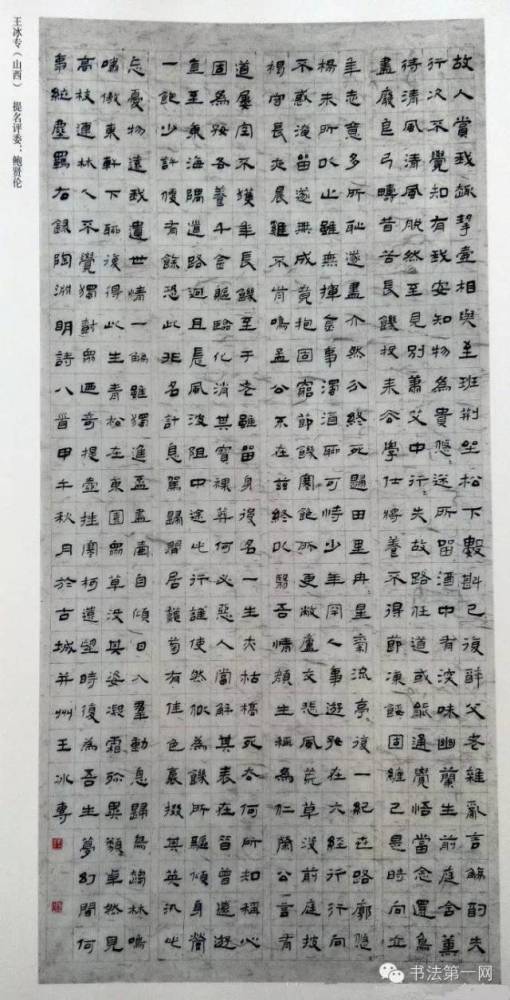 王冰专（山西）　提名评委：鲍贤伦
故人賞我趣挈壺相與至班荊坐松下數斟已復醉父老雜亂言觴酌失
行次不覺知有我安知物為貴悠悠迷所留酒中有深味幽蘭生前庭含薰
待清風清風脫然至見別蕭艾中行行失故路任道或能通覺悟當念還鳥
盡廢良弓疇昔苦長饑投耒去學仕將養不得節凍餒固纏己是時向立
年志意多所恥遂盡介然分終死歸田里冉冉星氣流亭亭復一紀世路廓悠悠
楊朱所以止雖無揮金事濁酒聊可恃少年罕人事遊好在六經行行向
不惑淹留遂無成竟抱固窮節饑寒飽所更敝廬交悲風荒草沒前庭披
褐守長夜晨雞不肯鳴孟公不在茲終以翳吾情顏生稱為仁榮公言有
道屢空不獲年長饑至于老雖留身後名一生亦枯槁死去何所知稱心
固為好客養千金軀臨化消其寶裸葬何必惡人當解其表在昔曾遠遊
直至東海隅道路迥且長風波阻中途此行誰使然似為饑所驅傾身營
一飽少許便有餘恐此非名計息駕歸閒居秋菊有佳色裛掇其英汎此
忘憂物遠我遺世情一觴雖獨進杯盡壺自傾日入羣動息歸鳥趨林鳴
嘯傲東軒下聊復得此生青松在東園眾草沒其姿凝霜殄異類卓然見
高枝連林人不覺獨對眾迺奇提壺挂寒柯遠望時復為吾生夢幻間何
事紲塵羈右錄陶淵明詩八首甲午秋月於古城并州王冰專
书法第一网